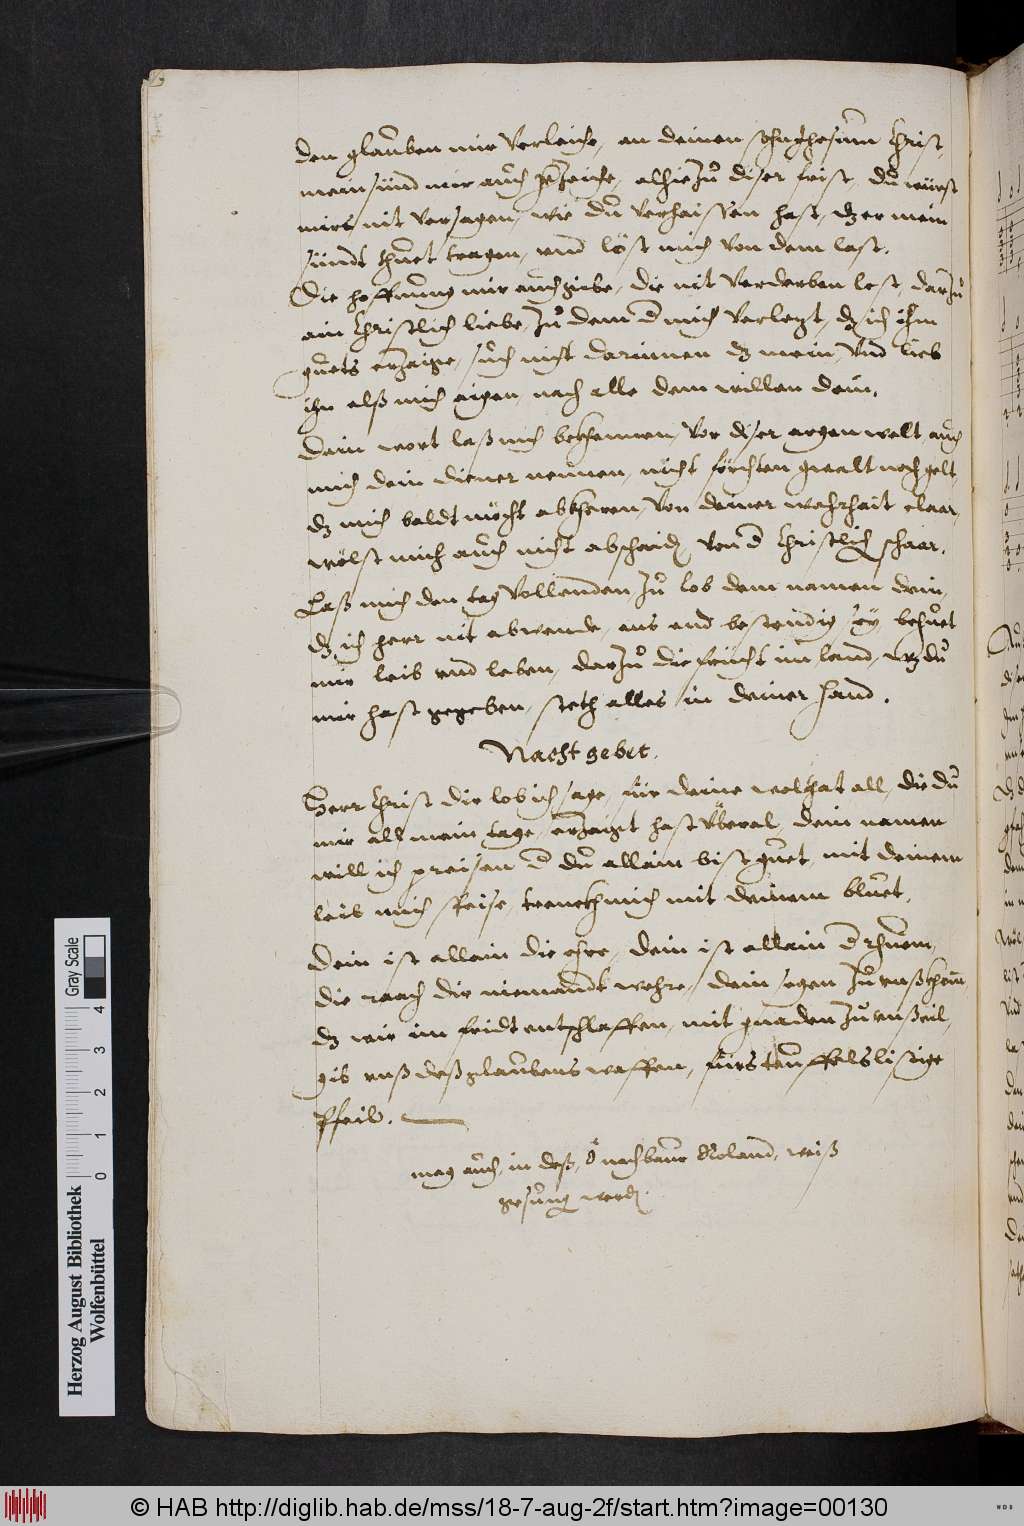 den glauben mir verleiche, an deinen sohn Jhesum Christ,
mein sünd mir auch verzeiche, alhie zu diser frist, du würst
mirs nit versagen, wie du verhaissen hast, dz er mein
sündt thuet tragen, und löst mich von dem last.
Die hoffnung mir auch gibe, die nit verderben lest, darzu
ain Christlich liebe, zu dem d mich verlezt, dz ich ihm
guets erzaige, such nicht darinnen dz mein, und lieb
ihn alß mich aigen, nach alle dem willen dein.
Dein wort laß mich bekhennen, vor diser argen welt, auch
mich dein diener nennen, nicht förchten gwalt noch gelt,
dz mich baldt möcht abkheren, von deiner wahrhait claar,
wölst mich auch nicht abschaid von d Christlich schaar.
Laß mich den tag vollenden, zu lob dem namen dein,
dz ich herr nit abwende, ans end bestendig sey, behuet
mir leib und leben, darzu die frücht im land, wz du
mir hast gegeben, steth alles in deiner hand.
Nacht gebet.
Herr Christ dir lob ich sage, für deine wolthat all, die du
mir all mein tage, erzaigt hast überal, dein namen
will ich preisen d du allein bist guet, mit deinem
leib mich speise, trenckh mich mit deinem bluet.
Dein ist allein die ehre, dein ist allein d rhuem,
die raach dir niemandt wehre, dein segen zu unß khom,
dz wir im fridt entschlaffen, mit gnaden zu unß eil,
gib unß deß glaubens waffen, fürs teuffels listige
Pfeil.
mag auch, in deß, O nachbaur Roland, weiß
gesung werd.
Herzog August Bibliothek
Wolfenbüttel
Gray Scale
0 1 2 3 4
© HAB http://diglib.hab.de/mss/18-7-aug-2f/start.htm?image=00130